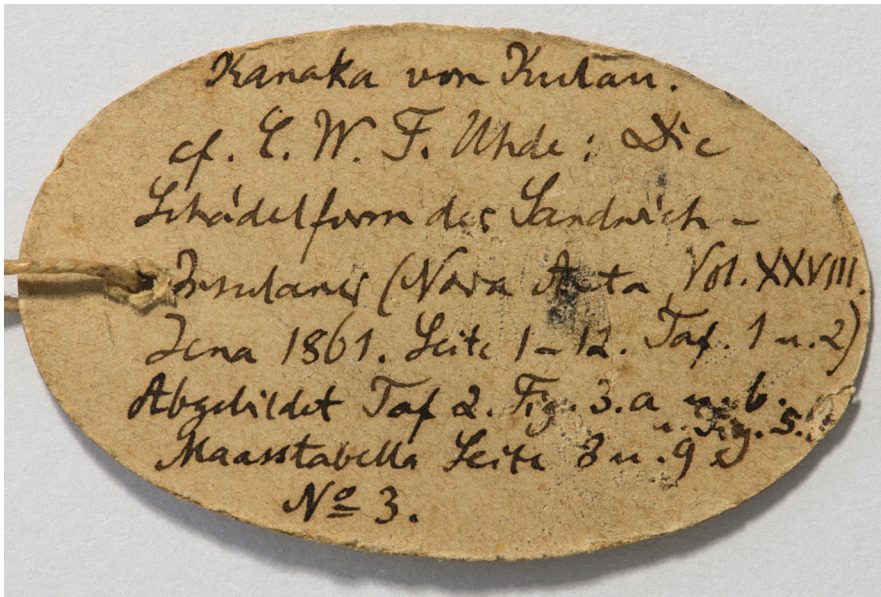 Kanaka von Kutau.
cf. C. W. F. Uhde: Die
Schädelform des Sandwich-
Insulaner (Nova Acta Vol. XXVIII.
Jena 1861. Seite 1-12. Taf. 1 u. 2)
Abgebildet Taf 2. Fig. 3. a u. b.
u. Fig. 5.
Maasstabella Seite 8 u. 9
No 3.